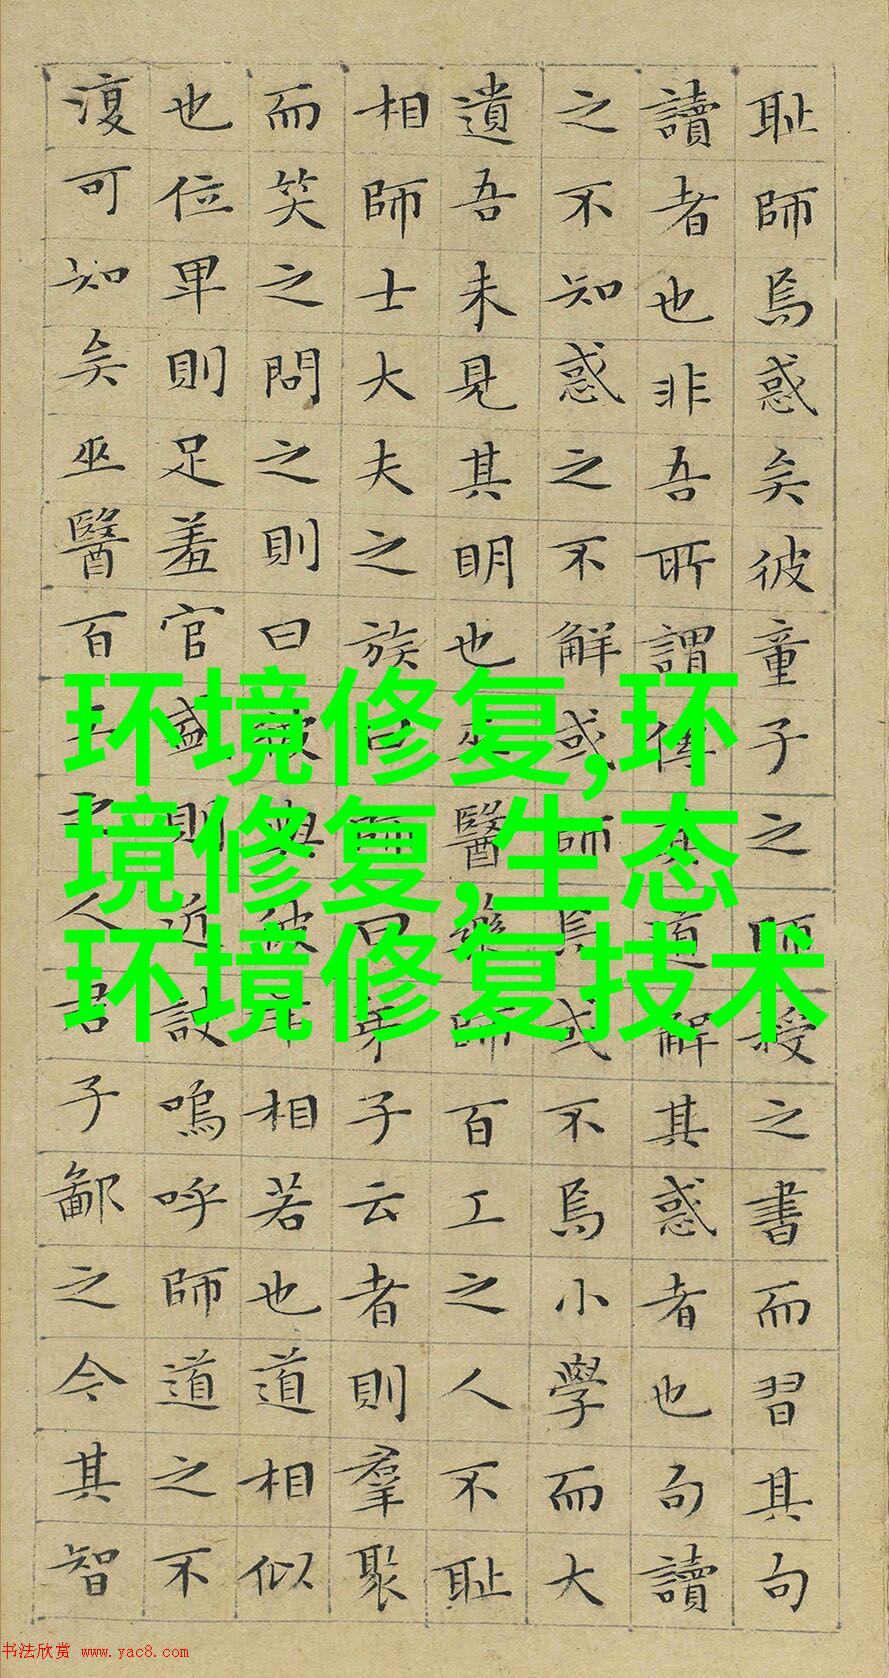 耻師焉惑矣彼童子之師授之書而習其句
讀者也非吾所謂傳其道解其惑者也句讀
之不知惑之不解或師焉或不焉小學而大
遺吾未見其明也巫醫樂師百工之人不耻
相師士大夫之族曰師曰弟子云者則羣聚
而笑之問之則曰彼與彼年相若也道相似
也位卑則足羞官盛則近諛嗚呼師道之不
復可知矣巫醫百工之人君子鄙之今其智
环境修复,环
境修复,生态
环境修复技术
书法欣赏 www.yac8.com